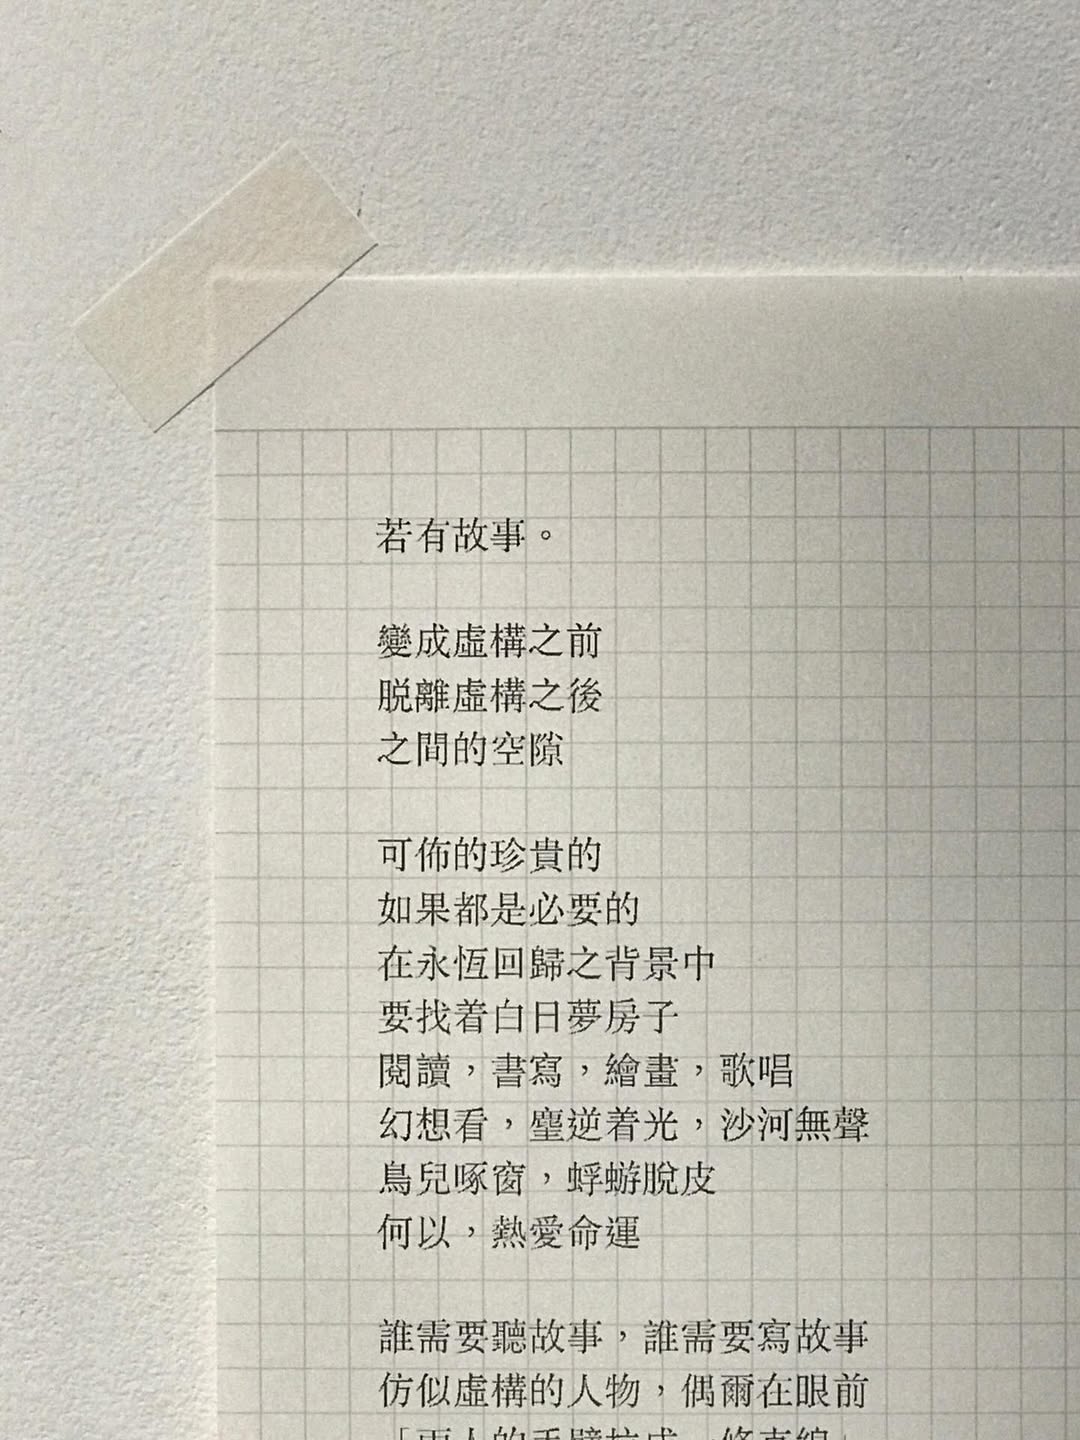 若有故事。
變成虛構之前
脫離虛構之後
之間的空隙
可佈的珍貴的
如果都是必要的
在永恆回歸之背景中
要找着白日夢房子
閱讀，書寫，繪畫，歌唱
幻想看，塵逆着光，沙河無聲
鳥兒啄窗，蜉蝣脫皮
何以，熱愛命運
誰需要聽故事，誰需要寫故事
仿似虛構的人物，偶爾在眼前